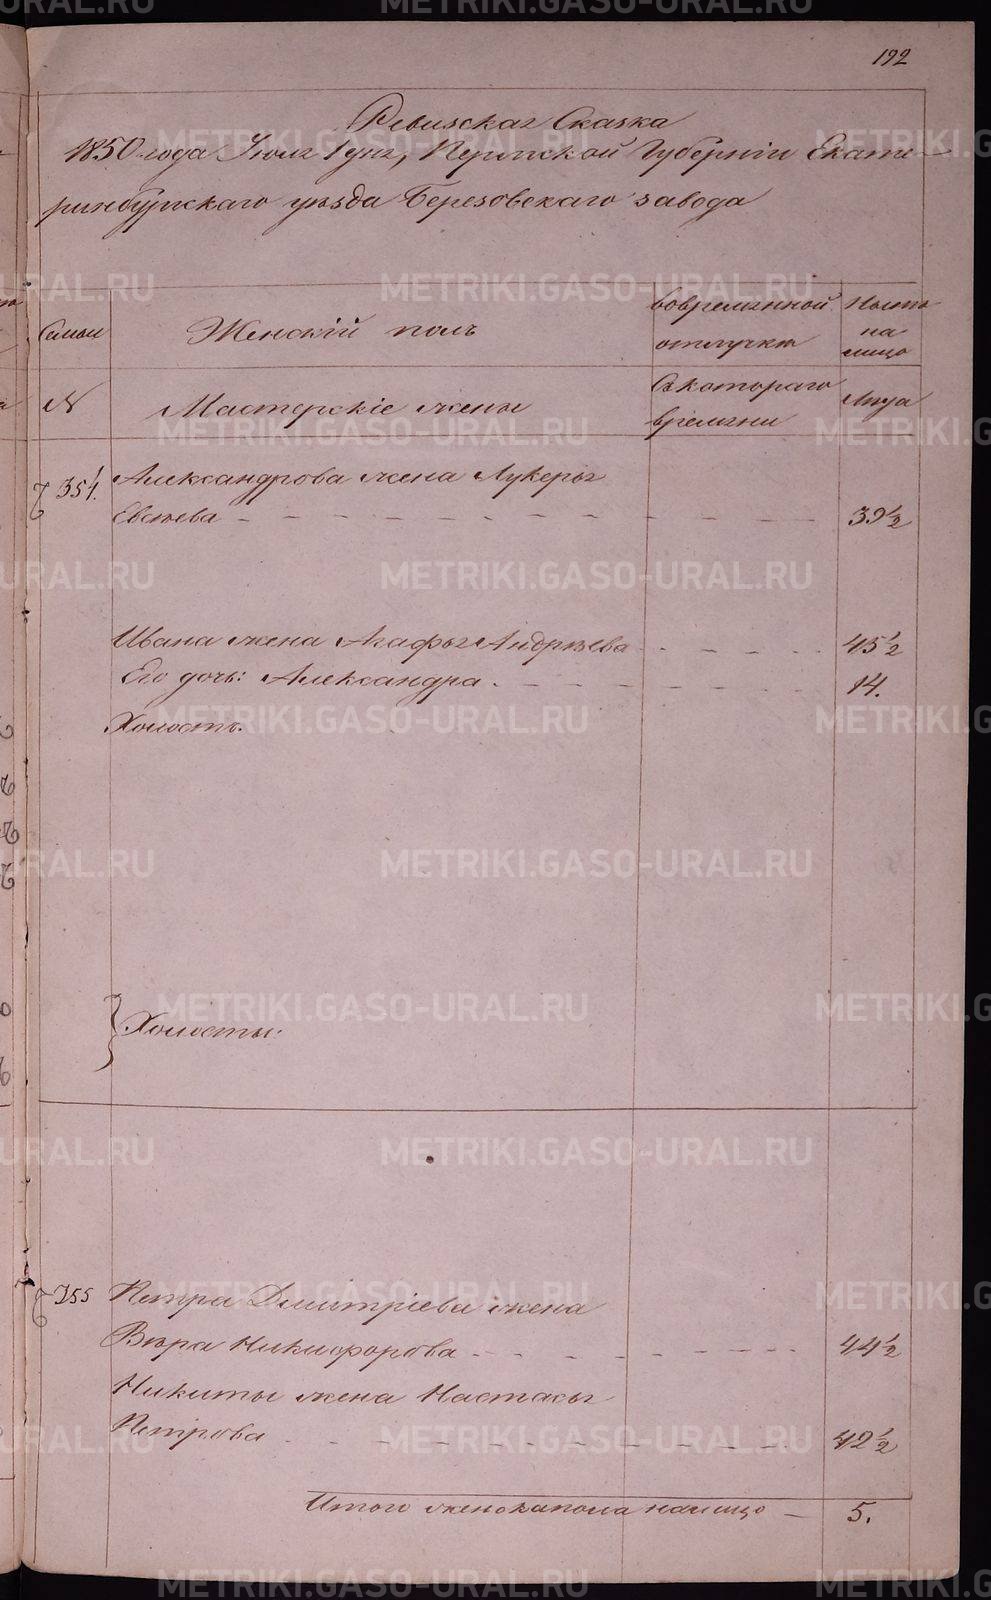 192
Ревизская Сказка
1850 года Іюля 1 дня, Пермской Губерніи Екате-
ринбургскаго уѣзда Березовскаго завода
Семьи
Женскій полъ
Вовременной
отлучкѣ
Ныне
на
лицо
№
Мастерскіе жены
Съкотораго
времени
Лѣта
354.
Александрова жена Лукерья
Евсѣева
39 1/2
Ивана жена Агафья Андрѣева
45 1/2
Его дочь: Александра.
14.
Холостъ.
Холосты.
355
Петра Дмитріева жена
Вѣра Никифорова
44 1/2
Никиты жена Настасья
Петрова
42 1/2
Итого женскапола налицо
5.
METRIKI.GASO-URAL.RU